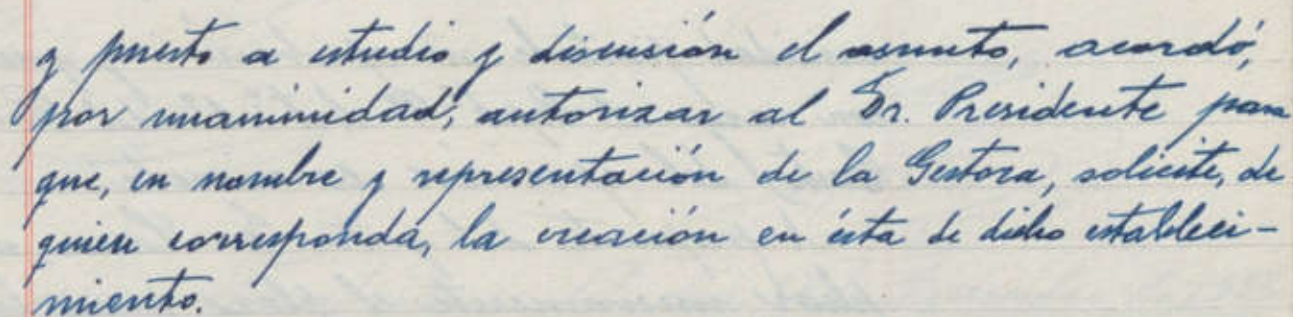 y puesto a estudio y discusión el asunto, acordó,
por unaminidad, autorizar al Sr. Presidente para
que, en nombre y representación de la Gestora, solicite, de
quien corresponda, la creación en ésta de dicho estableci-
miento.